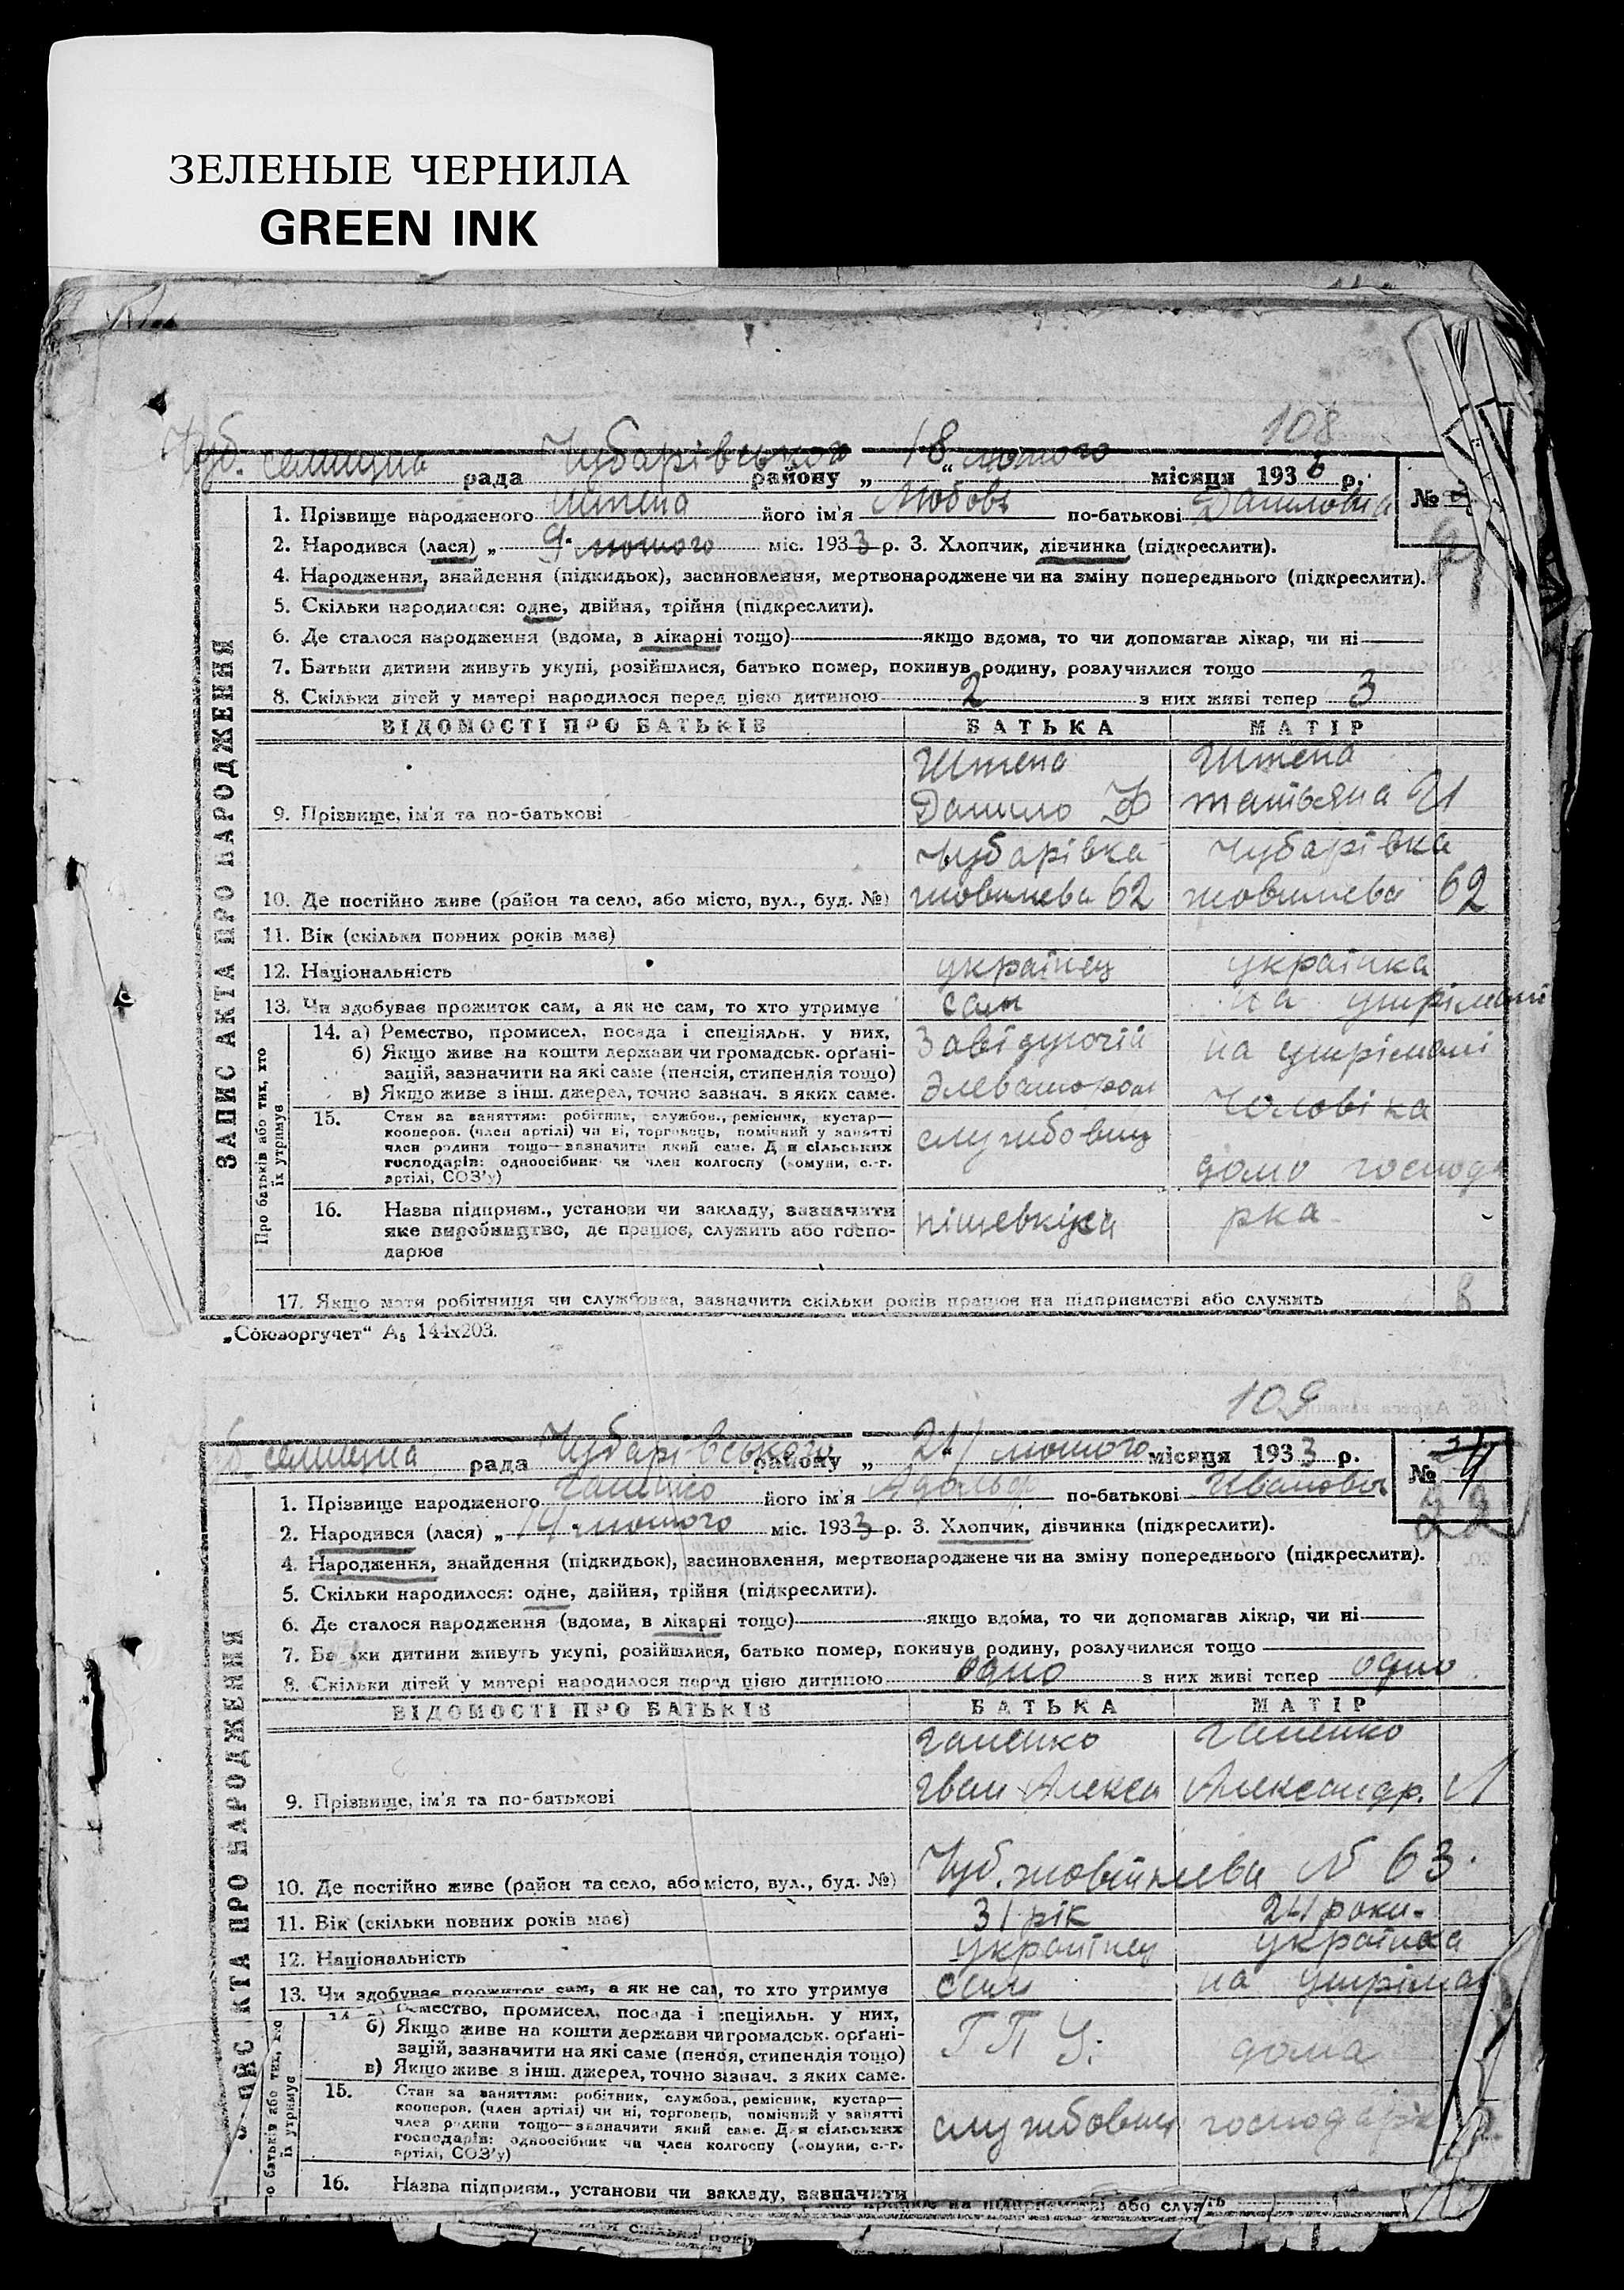 ЗЕЛЕНЫЕ ЧЕРНИЛА
GREEN INK
108
Чуб. селищна рада Чубарівського району „ 18 " лютого місяця 1933 р.
№
1. Прізвище народженого Штепа його ім'я Любовь по-батькові Даниловна
2. Народився (лася) „ 9 лютого міс. 1933 р. 3. Хлопчик, дівчинка (підкреслити).
4. Народження, знайдення (підкидьок), засиновлення, мертвонароджене чи на зміну попереднього (підкреслити).
5. Скільки народилося: одне, двійня, трійня (підкреслити).
6. Де сталося народження (вдома, в лікарні тощо) якщо вдома, то чи допомагав лікар, чи ні
7. Батьки дитини живуть укупі, розійшлися, батько помер, покинув родину, розлучилися тощо
8. Скільки дітей у матері народилося перед цією дитиною 2 з них живі тепер 3
ЗАПИС АКТА ПРО НАРОДЖЕННЯ
ВІДОМОСТІ ПРО БАТЬКІВ БАТЬКА МАТІР
Штепа Штепа
9. Прізвище, ім'я та по-батькові Данило Ф татьяна
Чубарівка Чубарівка
10. Де постійно живе (район та село, або місто, вул., буд. №) 62 62
11. Вік (скільки повних років має)
12. Національність українец українка
13. Чи здобуває прожиток сам, а як не сам, то хто утримує сам на утрімані
Про батьків або тих, хто їх утримує
14. а) Ремество, промисел, посада і спеціяльн. у них, Завідуючій на утрімані
б) Якщо живе на кошти держави чи громадськ. орґані-
зацій, зазначити на які саме (пенсія, стипендія тощо) Элеватором
в) Якщо живе з інш. джерел, точно зазнач. з яких саме. Чоловіка
15. Стан за заняттям: робітник, службов., ремісник, кустар—
кооперов. (член артілі) чи ні, торговець, помічний у занятті службовиц
член родини тощо—зазначити який саме. Для сільських
господарів: одноосібник чи член колгоспу (комуни, с.-г. домо господа
артілі, СОЗ'у)
16. Назва підприєм., установи чи закладу, зазначити рка
яке виробництво, де працює, служить або госпо-
дарює
17. Якщо мати робітниця чи службовка, зазначити скільки років працює на підприємстві або служить
„Союзоргучет" А5 144х203.
109
селищна рада Чубарівського району „ 24 лютого місяця 1933 р.
№
22
1. Прізвище народженого Ганенко його ім'я Адольф по-батькові Иванович
2. Народився (лася) „ 14 лютого міс. 1933 р. 3. Хлопчик, дівчинка (підкреслити).
4. Народження, знайдення (підкидьок), засиновлення, мертвонароджене чи на зміну попереднього (підкреслити).
5. Скільки народилося: одне, двійня, трійня (підкреслити).
6. Де сталося народження (вдома, в лікарні тощо) якщо вдома, то чи допомагав лікар, чи ні
7. Батьки дитини живуть укупі, розійшлися, батько помер, покинув родину, розлучилися тощо
8. Скільки дітей у матері народилося перед цією дитиною одно з них живі тепер одно
АКТА ПРО НАРОДЖЕННЯ
ВІДОМОСТІ ПРО БАТЬКІВ БАТЬКА МАТІР
Ганенко Ганенко
9. Прізвище, ім'я та по-батькові Іван Алекса Александр. Л
10. Де постійно живе (район та село, або місто, вул., буд. №) Чуб. № 63.
11. Вік (скільки повних років має) 31 рік 24 роки.
12. Національність українец українка
13. Чи здобуває прожиток сам, а як не сам, то хто утримує сам на утріма
Ремество, промисел, посада і спеціяльн. у них, ГПУ. дома
б) Якщо живе на кошти держави чи громадськ. орґані-
зацій, зазначити на які саме (пенсія, стипендія тощо)
в) Якщо живе з інш. джерел, точно зазнач. з яких саме.
батьків або тих, хто їх утримує
15. Стан за заняттям: робітник, службов., ремісник, кустар—
кооперов. (член артілі) чи ні, торговець, помічний у занятті
член родини тощо—зазначити який саме. Для сільських службовиц господарк
господарів: одноосібник чи член колгоспу (комуни, с.-г.
артілі, СОЗ'у)
16. Назва підприєм., установи чи закладу, зазначити
працює на підприємстві або служить
скільки років